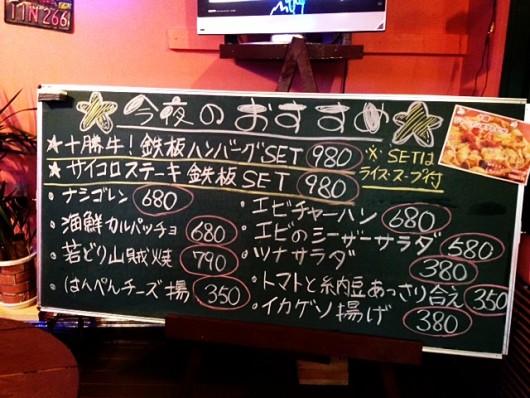 11N 266
今夜のおすすめ
★十勝牛!鉄板ハンバーグSET 980
★サイコロステーキ鉄板SET 980
※SETは
ライス・スープ付
・ナシゴレン 680
・海鮮カルパッチョ 680
・若どり山賊焼 790
・はんぺんチーズ揚 350
・エビチャーハン 680
・エビのシーザーサラダ 580
・ツナサラダ 380
・トマトと納豆あっさり合え 350
・イカゲソ揚げ 380